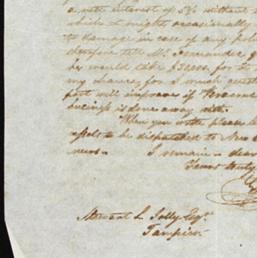 a nett interest of 5% without
which it might occasionally
to damage in case of any
therefore tell Mr. Fernandez
he would take $3000. for
my chances, for I much
part will improve if
business is done away with.
When you write please
to be dispatched to New
news. I remain dear
Yours truly
Stewart L. Jolly Esqr.
Tampico.